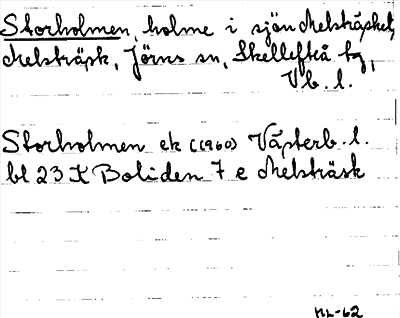 Storholmen, holme i sjön Melsträsket,
Melsträsk, Jörns sn, Skellefteå tg,
Vb. l.
Storholmen ek (1960) Västerb. l.
bl 23 K Boliden 7 e Melsträsk
HL-62